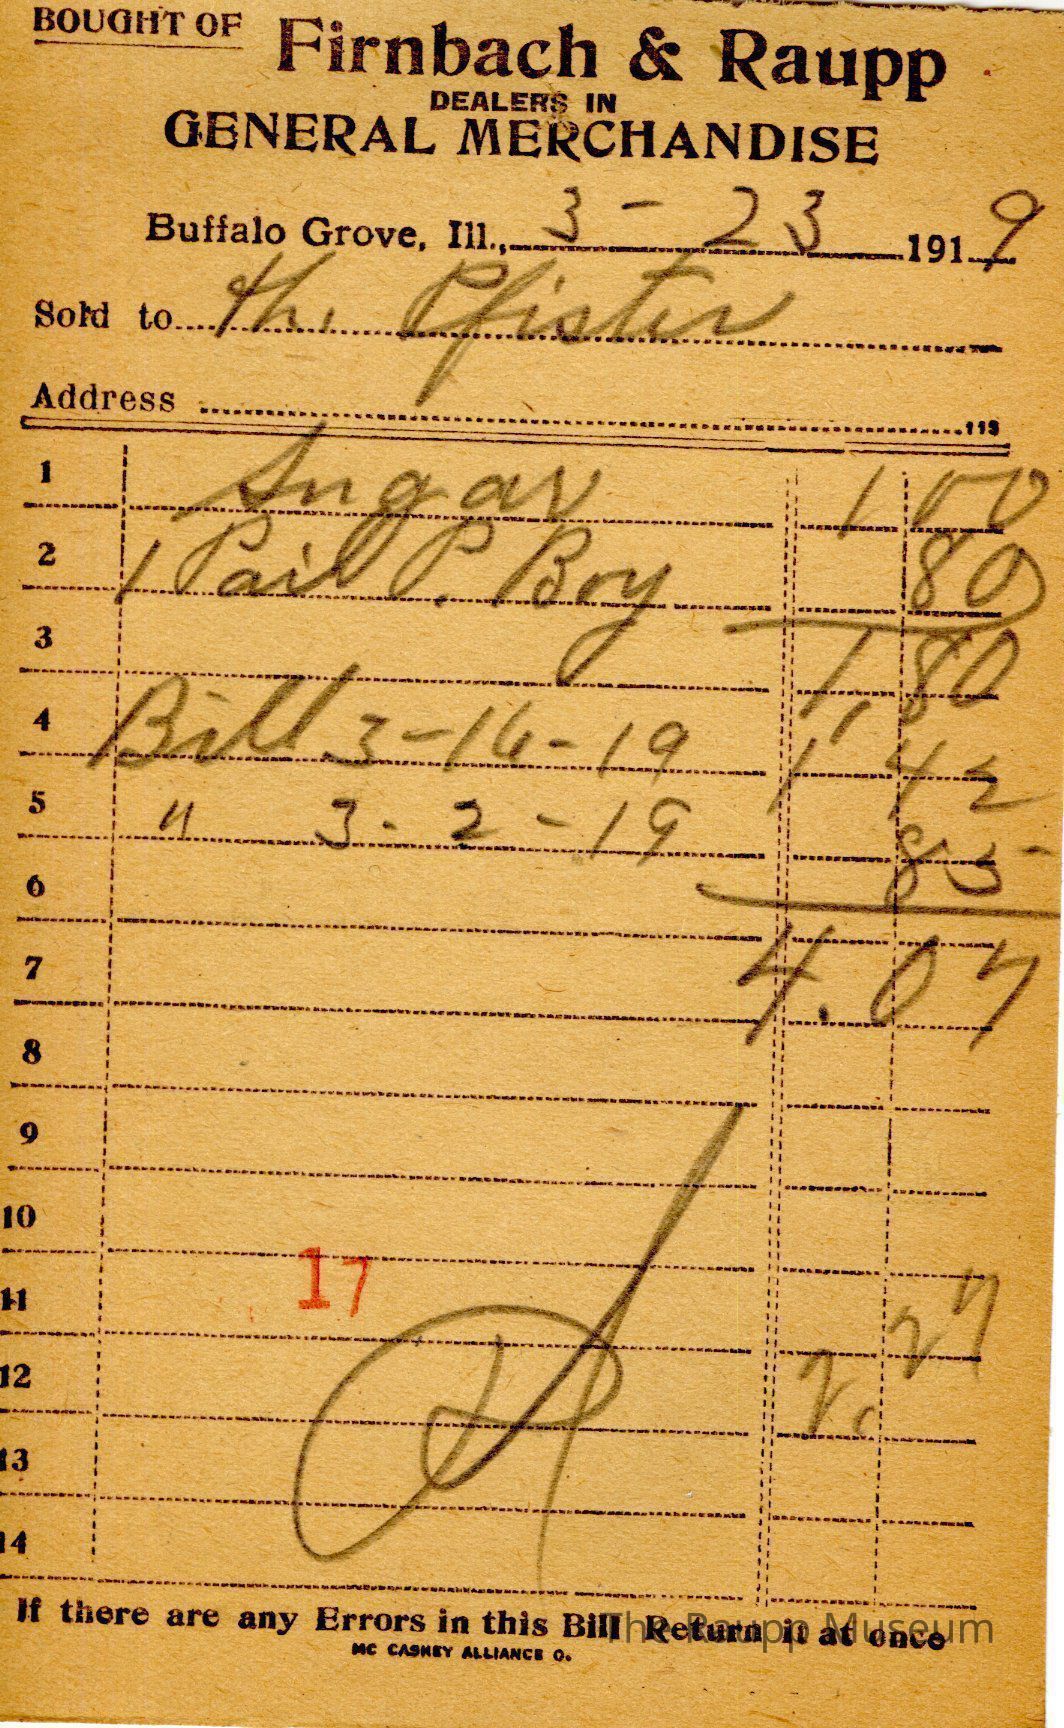 BOUGHT OF Firnbach & Raupp
DEALERS IN
GENERAL MERCHANDISE
Buffalo Grove, Ill., 3 - 23 1919
Sold to Th. Pfister
Address
113
1 Sugar 1 00
2 1 Pail P. Boy 80
3 1 80
4 Bill 3-16-19 1 42
5 " 3-2-19 85
6
7 4.07
8
9
10
17
11 27
12 2.
13
14
If there are any Errors in this Bill Return it at once
MC CASKEY ALLIANCE O.
The Raupp Museum